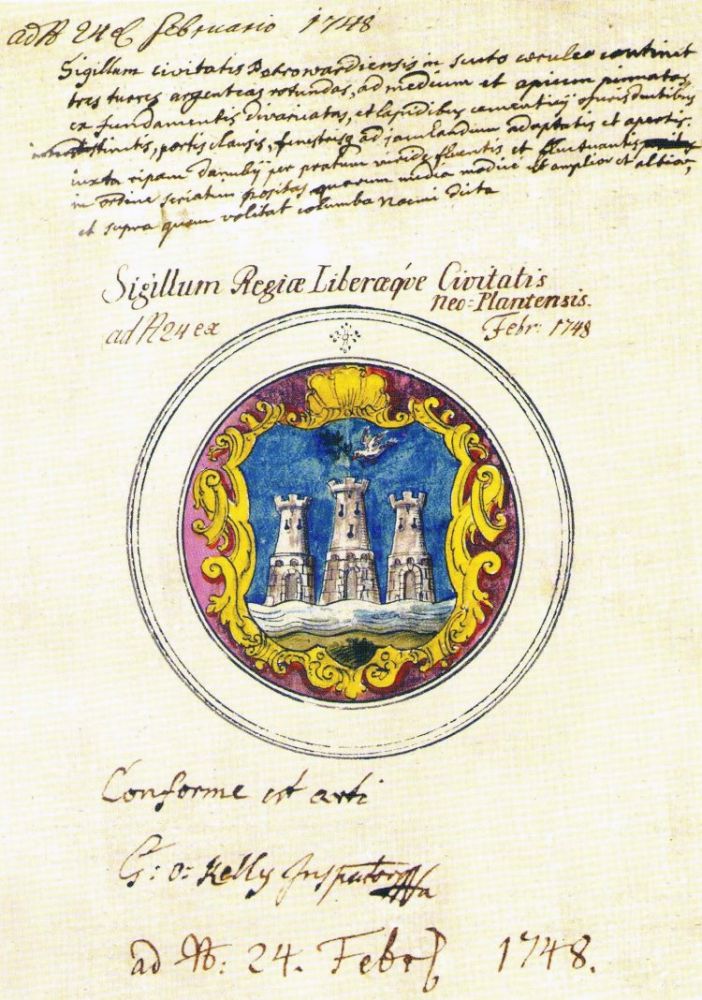 ad N 24 ex februario 1748
Sigillum civitatis Petrowardiensis in scuto cæruleo continet
tres turres argenteas rotundas, ad medium et apicem pinnatas,
ex fundamentis divaricatas, et lapidibus cæmenticijs
distinctis, portis clausis, fenestrisq ad jaculandum adaptatis et apertis.
iuxta ripam danubij per pratum viride fluentis et fluctuantis
in ordine seriatim positas quarum media modicè et amplior et altior,
et supra quam volitat columba Noemi dicta
Sigillum Regiæ Liberæqve Civitatis
neo=Plantensis.
ad N 24 ex Febr: 1748
Conforme est arti
G: o: Kelly
ad N: 24. Febr 1748.